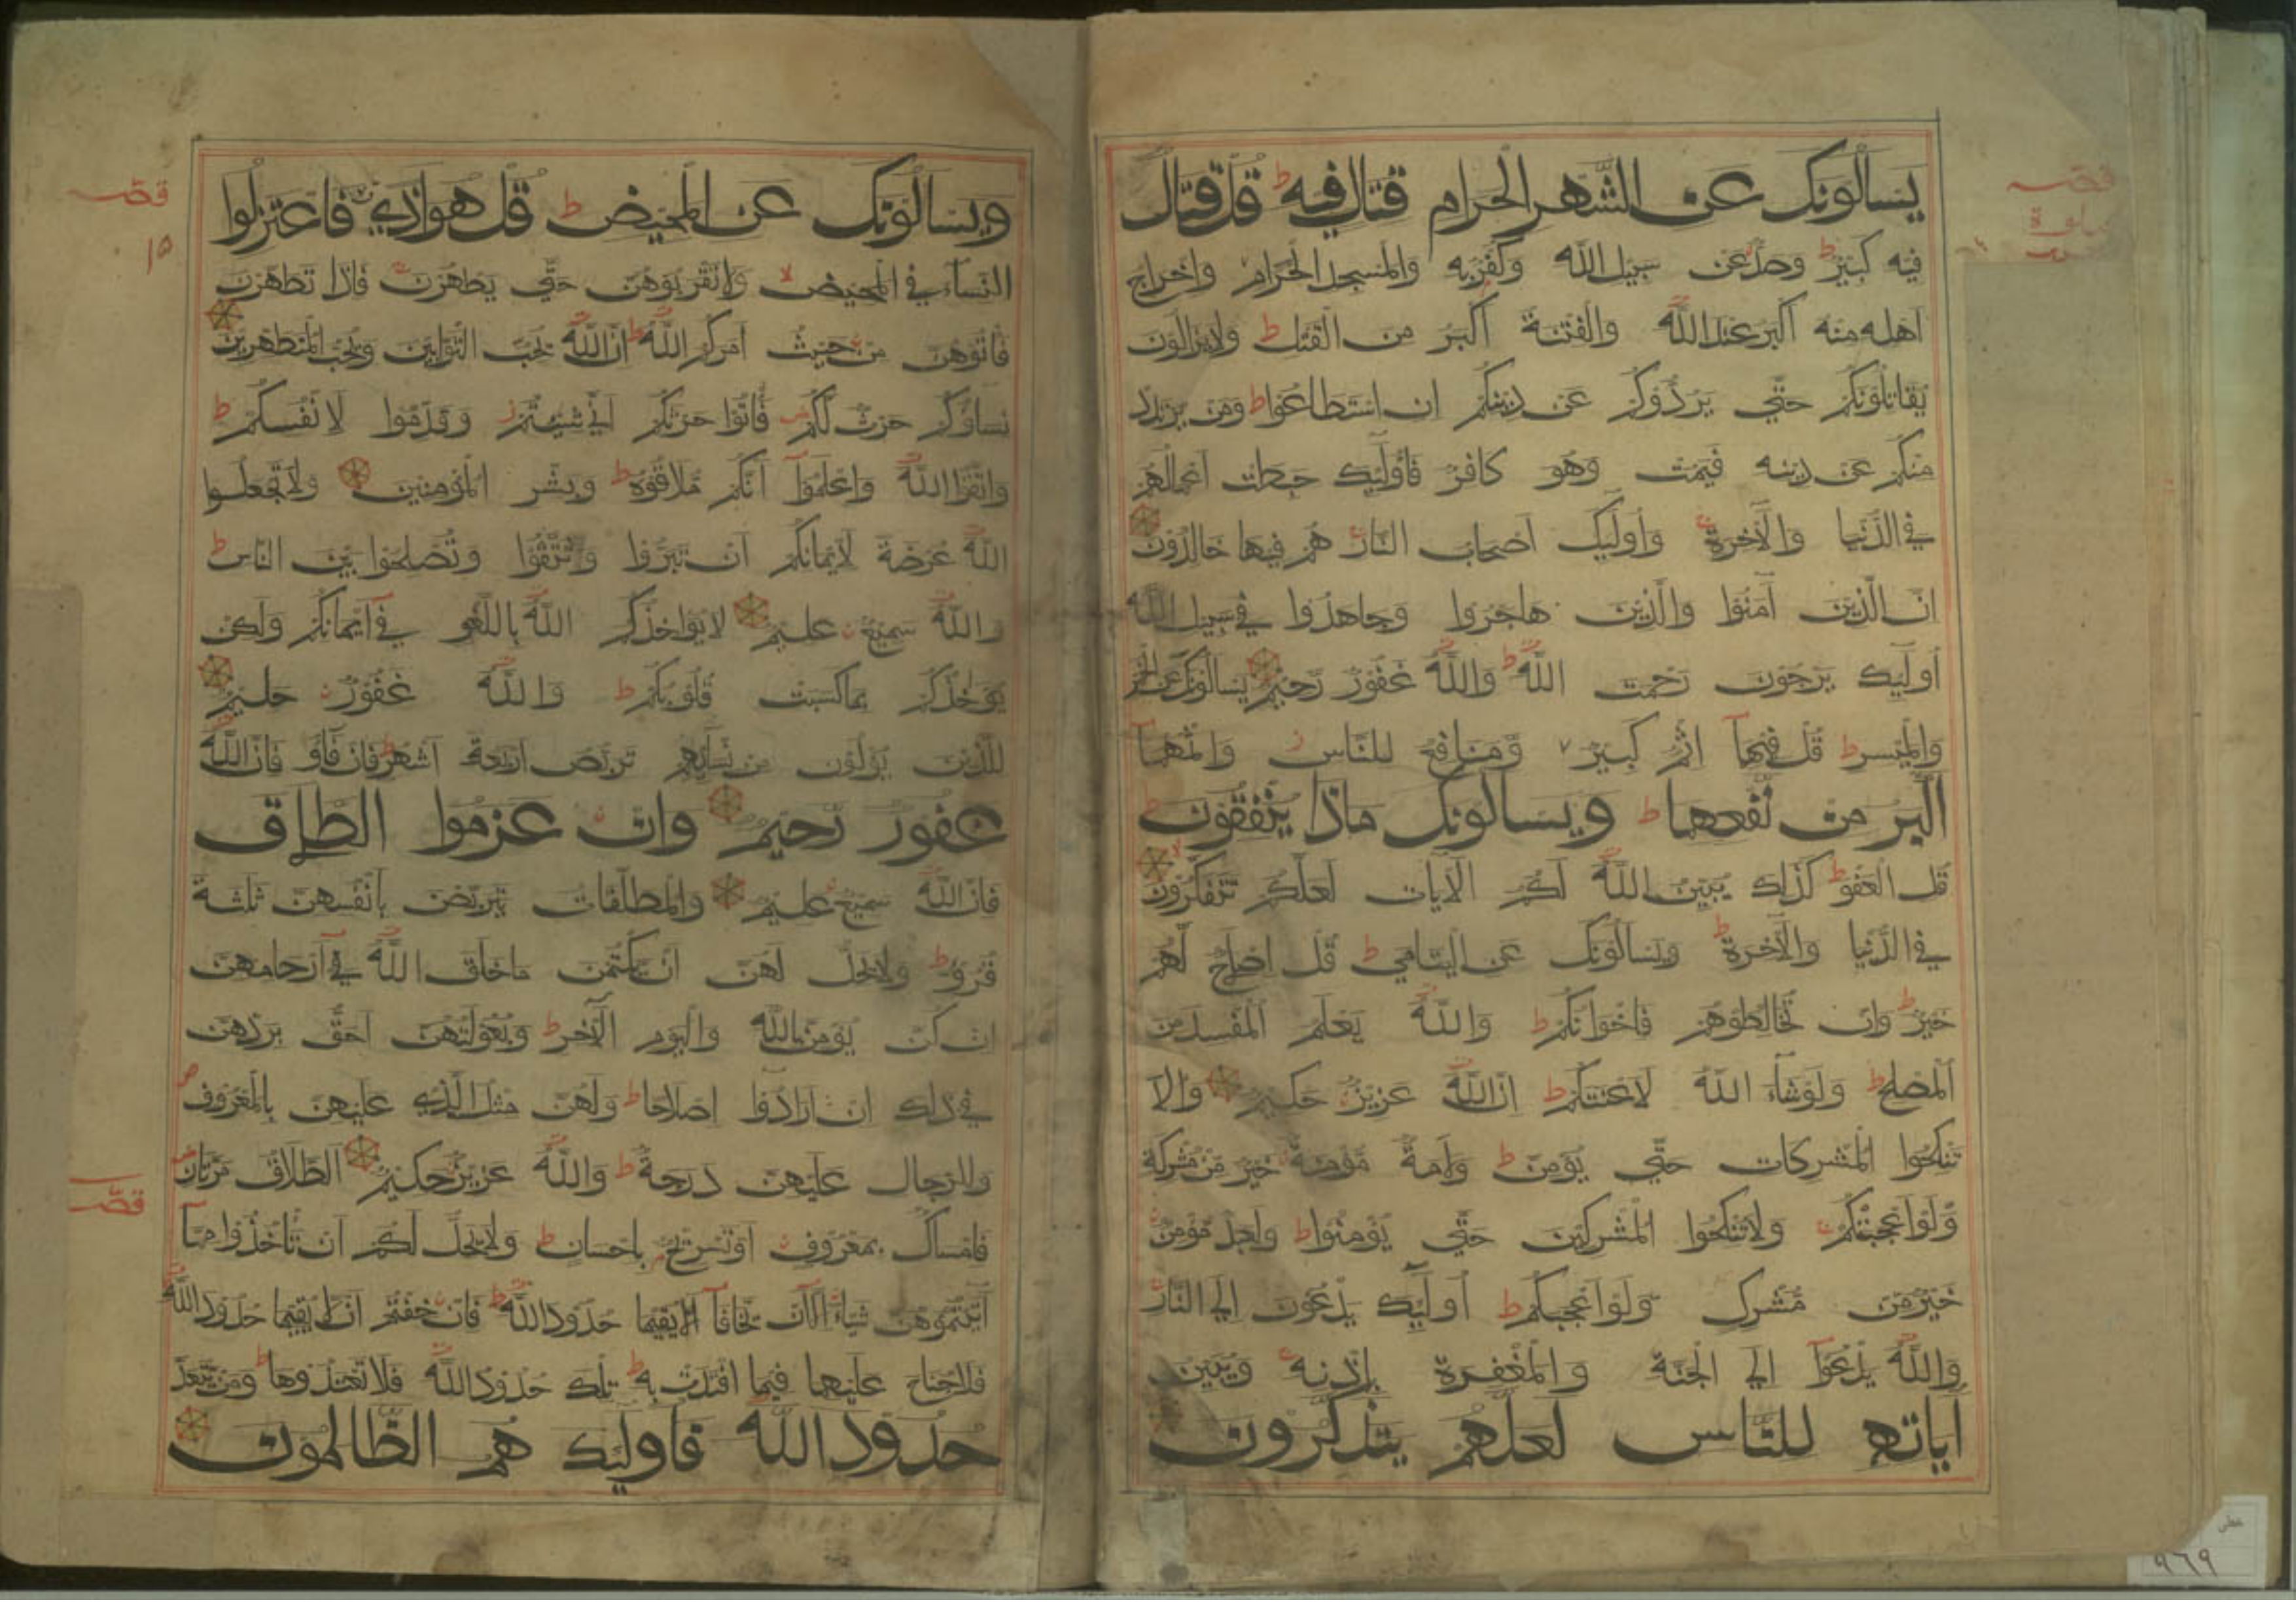 يسألونك عن الشهر الحرام قتال فيه ط قل قتال
فيه كبير ط وصد عن سبيل الله وكفر به والمسجد الحرام واخراج
اهله منه اكبر عند الله والفتنة اكبر من القتل ط ولا يزالون
يقاتلونكم حتى يردوكم عن دينكم ان استطاعوا ط ومن يرتدد
منكم عن دينه فيمت وهو كافر فأولئك حبطت اعمالهم
في الدنيا والآخرة وأولئك اصحاب النار هم فيها خالدون
ان الذين آمنوا والذين هاجروا وجاهدوا في سبيل الله
أولئك يرجون رحمت الله ط والله غفور رحيم يسألونك عن الخمر
والميسر ط قل فيهما اثم كبير ومنافع للناس ز واثمهما
اكبر من نفعهما ط ويسألونك ماذا ينفقون ط
قل العفو ط كذلك يبين الله لكم الآيات لعلكم تتفكرون لا
في الدنيا والآخرة ط ويسألونك عن اليتامى ط قل اصلاح لهم
خير ط وان تخالطوهم فاخوانكم ط والله يعلم المفسد من
المصلح ط ولو شاء الله لاعنتكم ط ان الله عزيز حكيم ولا
تنكحوا المشركات حتى يؤمن ط ولامة مؤمنة خير من مشركة
ولو اعجبتكم ولا تنكحوا المشركين حتى يؤمنوا ط ولعبد مؤمن
خير من مشرك ولو اعجبكم ط أولئك يدعون الى النار
والله يدعوا الى الجنة والمغفرة بإذنه ويبين
آياته للناس لعلهم يتذكرون
ويسألونك عن المحيض ط قل هو اذى فاعتزلوا
النساء في المحيض لا ولا تقربوهن حتى يطهرن فاذا تطهرن
فأتوهن من حيث امركم الله ط ان الله يحب التوابين ويحب المتطهرين
نساؤكم حرث لكم فأتوا حرثكم انى شئتم ز وقدموا لانفسكم ط
واتقوا الله واعلموا انكم ملاقوه ط وبشر المؤمنين ولا تجعلوا
الله عرضة لايمانكم ان تبروا وتتقوا وتصلحوا بين الناس ط
والله سميع عليم لا يؤاخذكم الله باللغو في ايمانكم ولكن
يؤاخذكم بما كسبت قلوبكم ط والله غفور حليم
للذين يؤلون من نسائهم تربص اربعة اشهر فان فاؤ فان الله
غفور رحيم وان عزموا الطلاق
فان الله سميع عليم والمطلقات يتربصن بأنفسهن ثلثة
قروء ط ولا يحل لهن ان يكتمن ما خلق الله في ارحامهن
ان كن يؤمن بالله واليوم الآخر ط وبعولتهن احق بردهن
في ذلك ان ارادوا اصلاحا ط ولهن مثل الذي عليهن بالمعروف ص
وللرجال عليهن درجة ط والله عزيز حكيم الطلاق مرتان ص
فامساك بمعروف او تسريح باحسان ط ولا يحل لكم ان تأخذوا مما
آتيتموهن شيئا الا ان يخافا الا يقيما حدود الله ط فان خفتم ان لا يقيما حدود الله
فلا جناح عليهما فيما افتدت به ط تلك حدود الله فلا تعتدوها ط ومن يتعد
حدود الله فأولئك هم الظالمون
١٥
٩٦٩